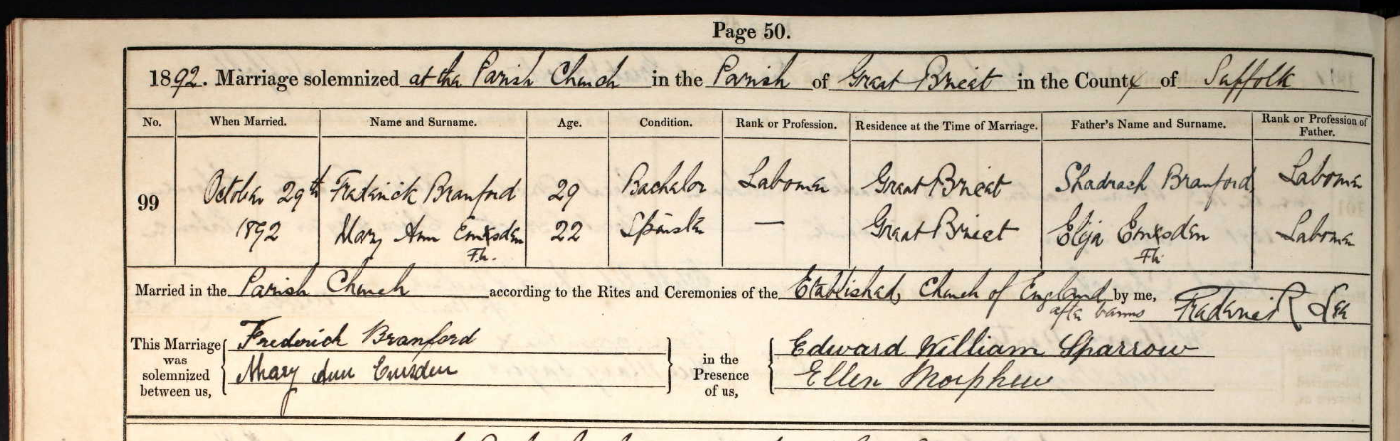 Page 50.
1892. Marriage solemnized at the Parish Church in the Parish of Great Bricet in the County of Suffolk
No. When Married. Name and Surname. Age. Condition. Rank or Profession. Residence at the Time of Marriage. Father's Name and Surname. Rank or Profession of Father.
99 October 29th Frederick Branford 29 Bachelor Labourer Great Bricet Shadrach Branford Labourer
1892 Mary Ann Emsden 22 Spinster — Great Bricet Elija Emsden Labourer
Married in the Parish Church according to the Rites and Ceremonies of the Established Church of England after banns by me, Frederick
This Marriage was solemnized between us, Frederick Branford in the Presence of us, Edward William Sparrow
Mary Ann Emsden Ellen Morphew